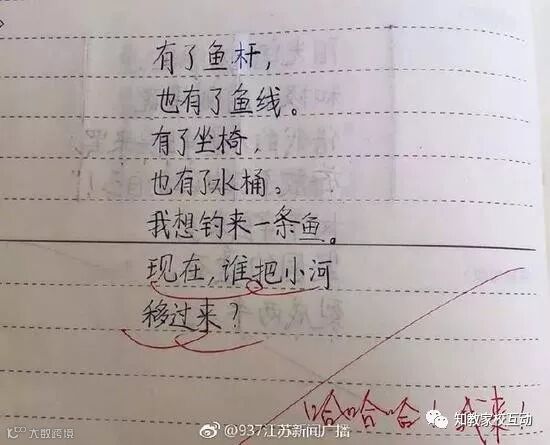 有了鱼杆，
也有了鱼线。
有了坐椅，
也有了水桶。
我想钓来一条鱼。
现在，谁把小河
移过来？
哈哈哈！我来！
大数跨境
@937江苏新闻广播
知教家校互动